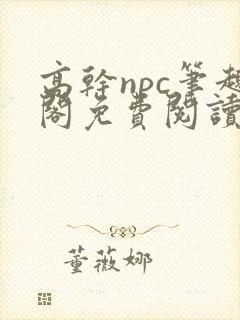 高幹npc筆趣
閣免費閱讀
董薇娜